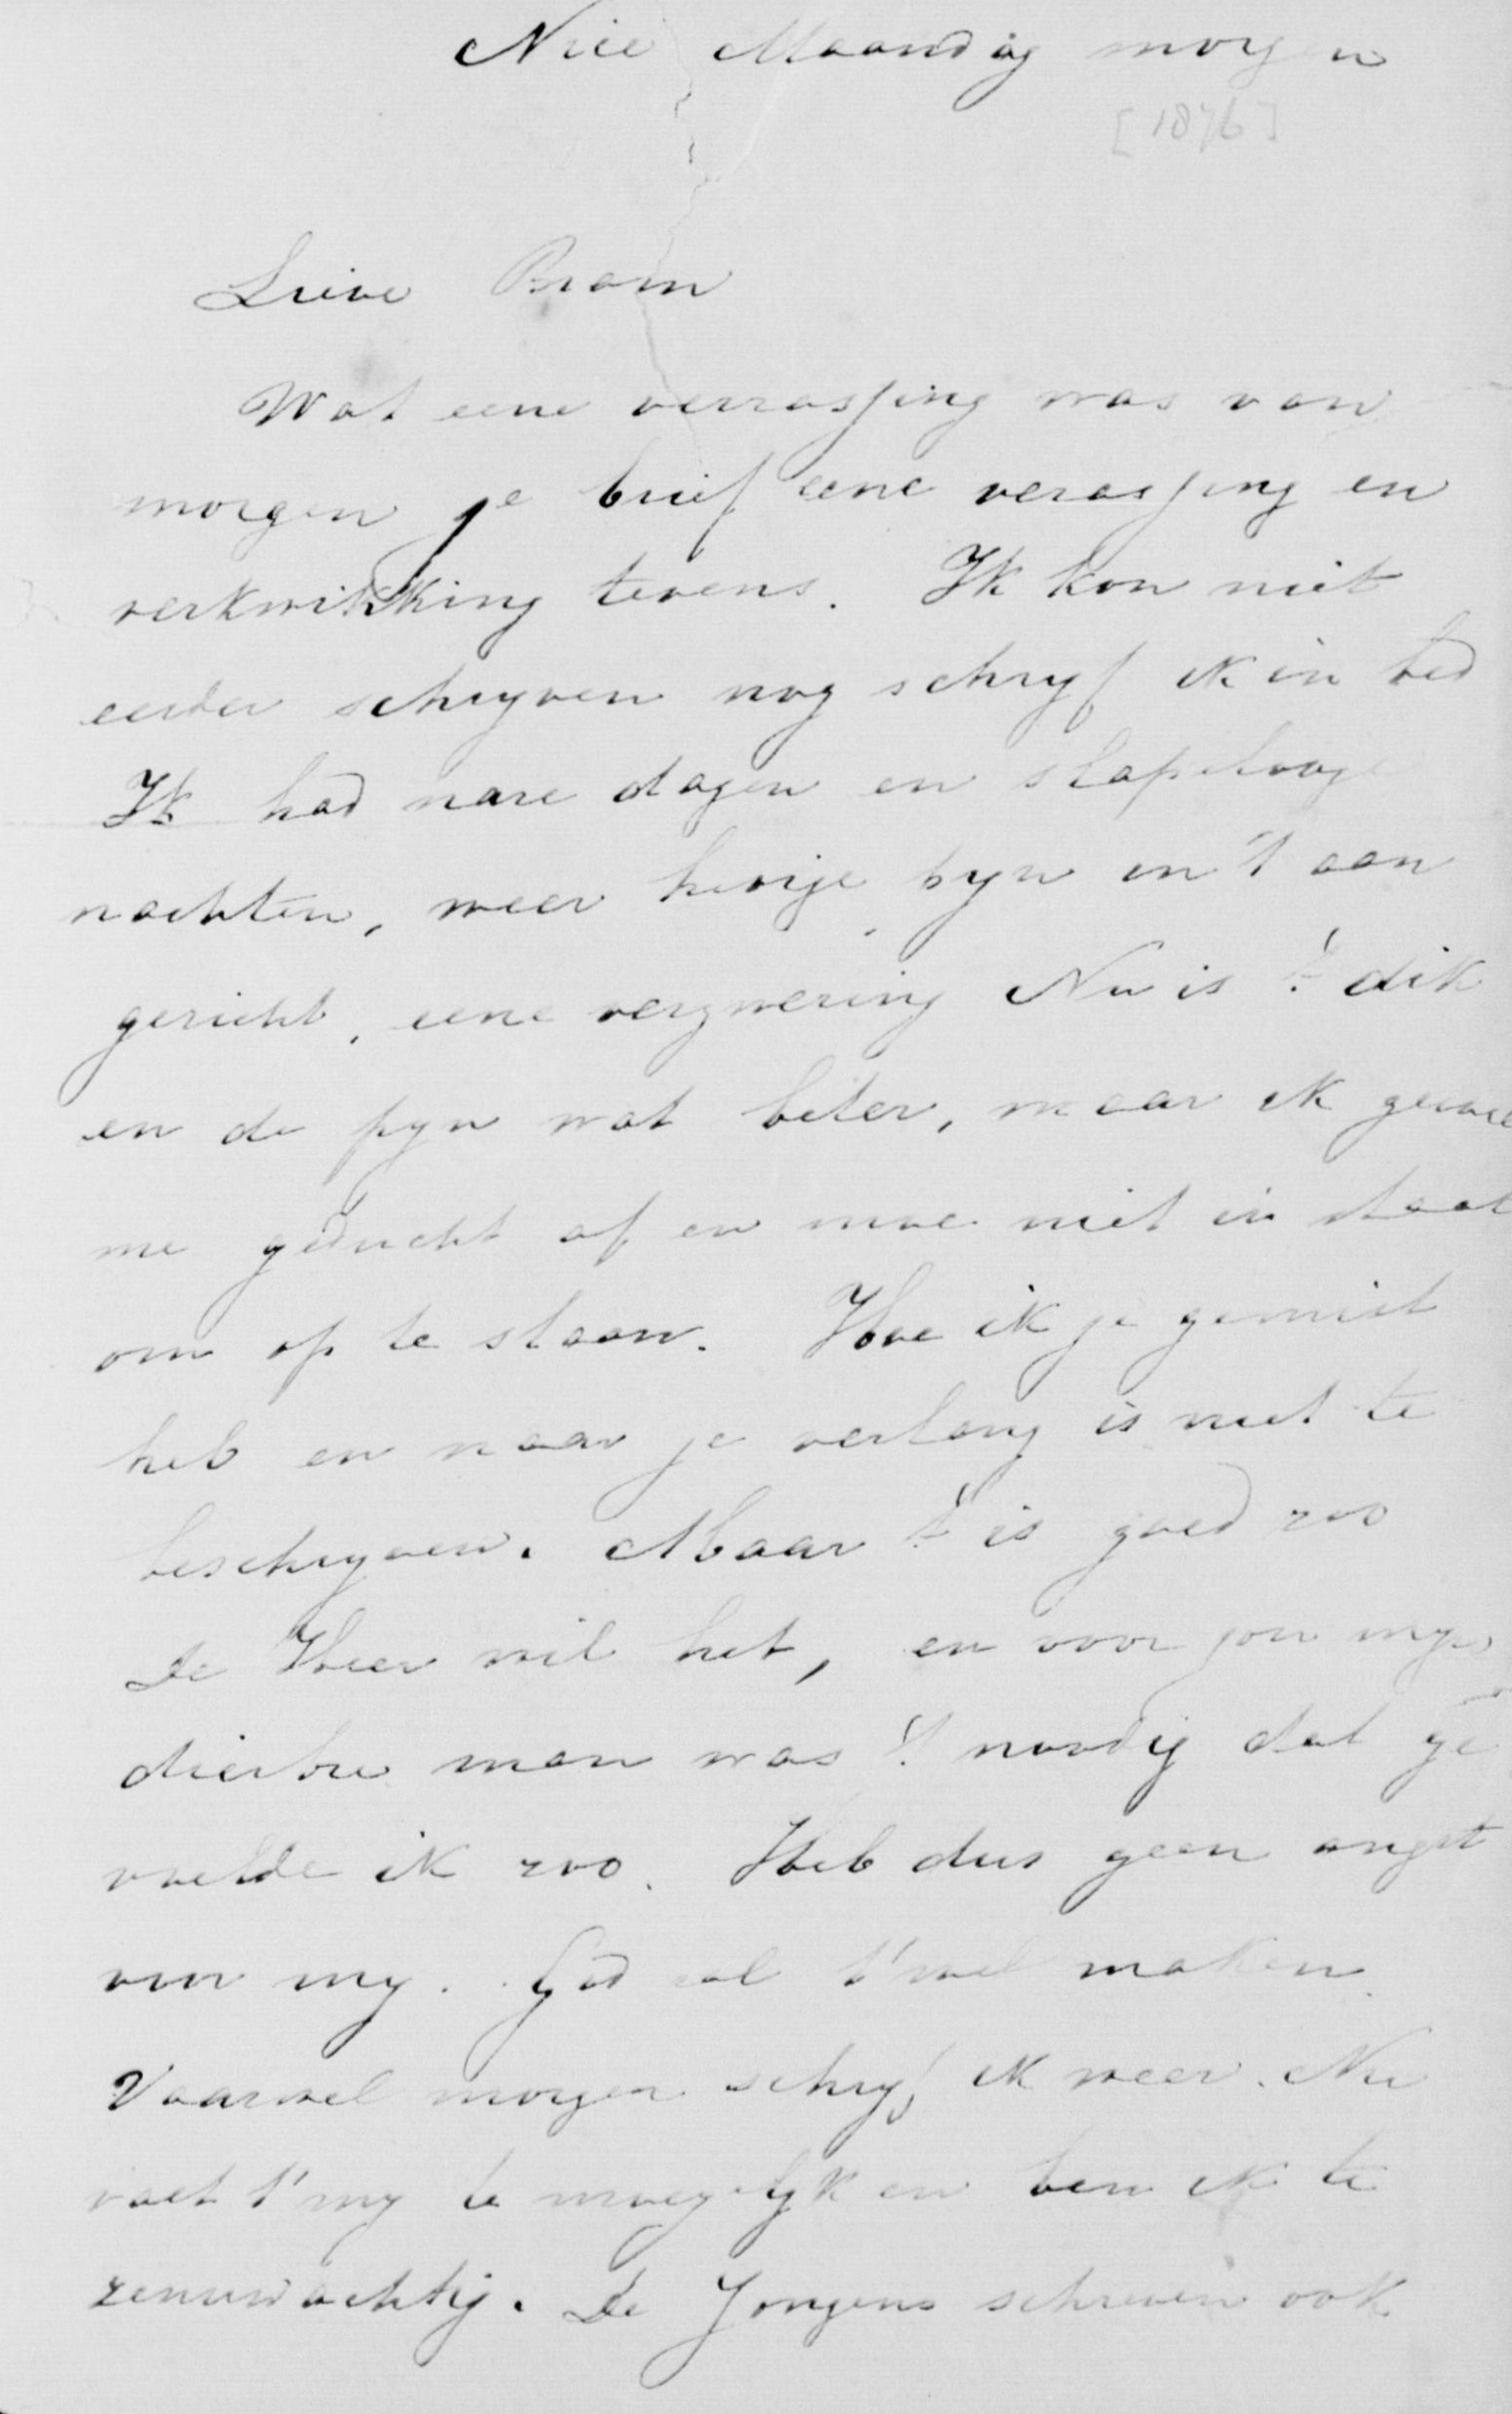 Nice Maandag morgen
[1876]
Lieve Bram
Wat eene verrassing was van
morgen je brief eene verassing en
verkwikking tevens. Ik kon niet
eerder schryven nog schryf ik in bed
Ik had nare dagen en slapelooze
nachten, weer hevige pyn in 't aan
gezicht, eene verzwering Nu is 't dik
en de pyn wat beter, maar ik gevoel
me geducht af en moe niet in staat
om op te staan. Hoe ik je gemist
heb en naar je verlang is niet te
beschryven. Maar 't is goed zoo
de Heer wil het, en voor jou myn
dierbre man was 't noodig dat ge
voelde ik zoo. Heb dus geen angst
voor my. God zal 't wel maken.
Vaarwel morgen schryf ik weer. Nu
valt 't my te moeyelyk en ben ik te
zenuwachtig. De Jongens schreven ook